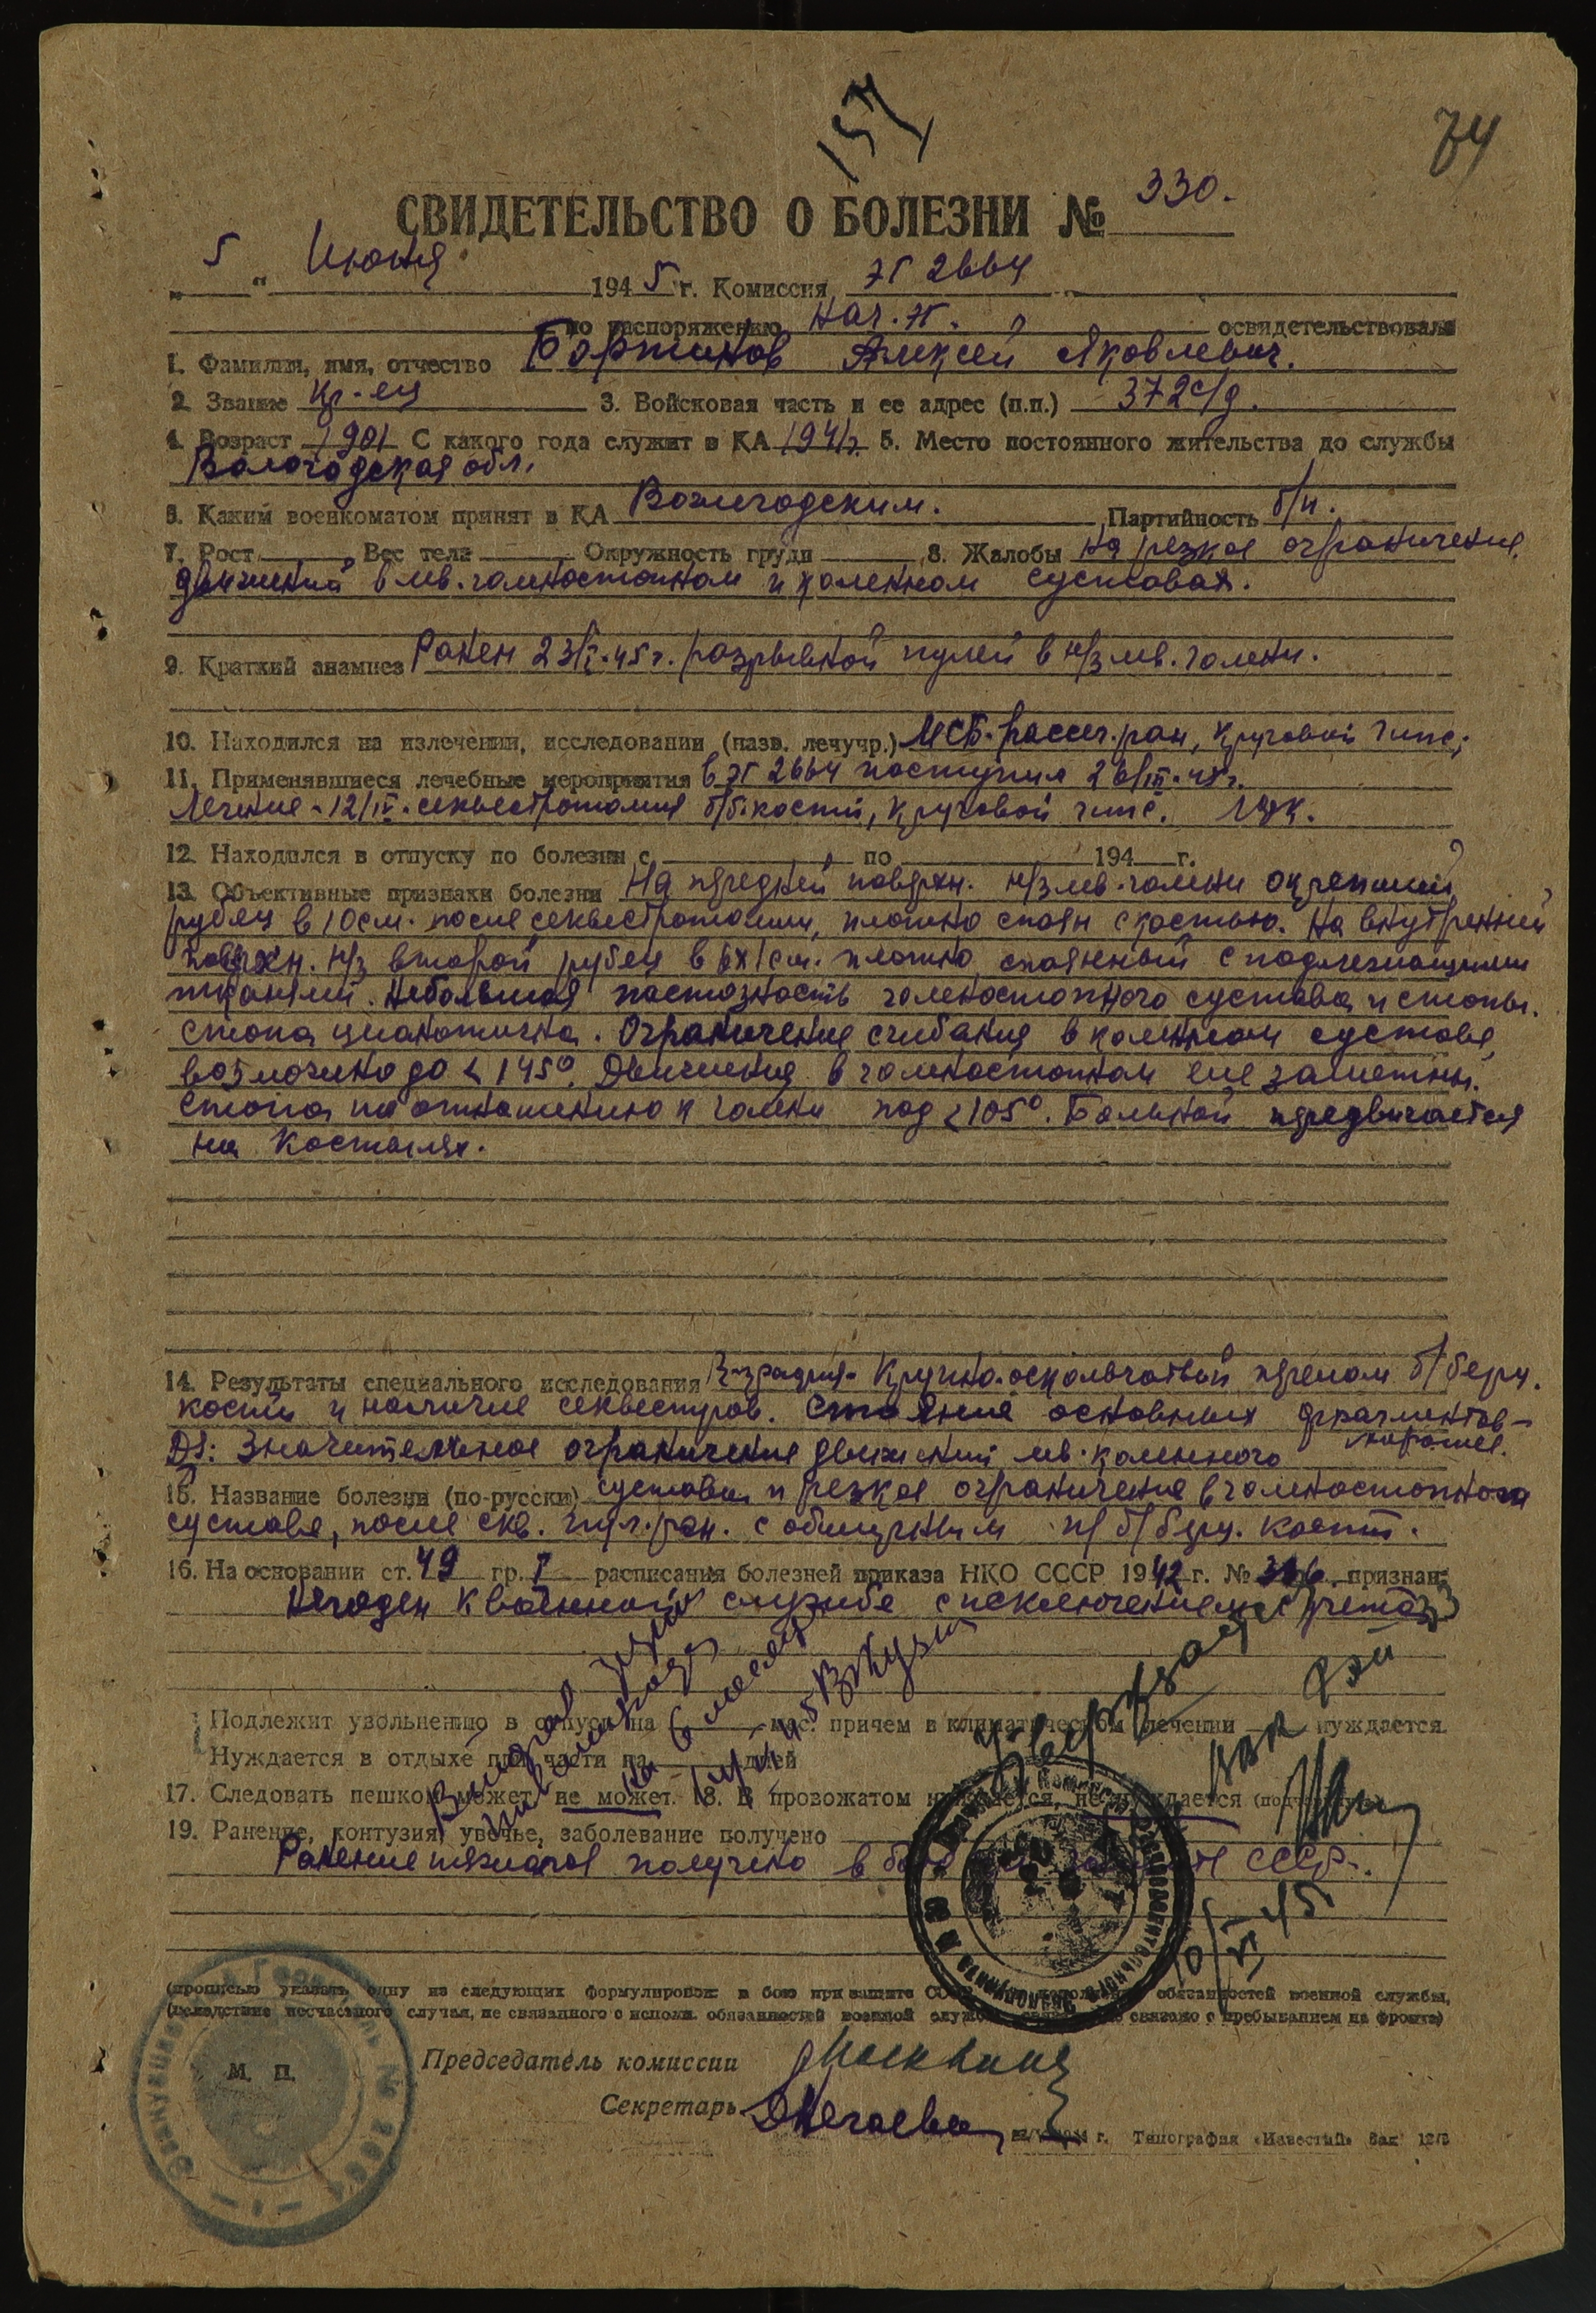 157
74
СВИДЕТЕЛЬСТВО О БОЛЕЗНИ № 330.
„5“ Июня 1945 г. Комиссия ЭГ 2664
по распоряжению Нач. ЭГ. освидетельствовала
1. Фамилия, имя, отчество Бортников Алексей Яковлевич.
2. Звание Кр-ец 3. Войсковая часть и ее адрес (п.п.) 372 с/д.
4. Возраст 1901 С какого года служит в КА 1941 г. 5. Место постоянного жительства до службы
Вологодская обл.
6. Каким военкоматом принят в КА Вожегодским. Партийность б/п.
7. Рост Вес тела Окружность груди 8. Жалобы На резкое ограничение
движений в лев. голеностопном и коленном суставах.
9. Краткий анамнез Ранен 23/I-45 г. разрывной пулей в н/з лев. голени.
10. Находился на излечении, исследовании (назв. лечучр.) МСБ-рассеч. ран, круговой гипс;
11. Применявшиеся лечебные мероприятия в ЭГ 2664 поступил 26/III-45 г.
Лечение-12/IV-секвестротомия б/б.кости, круговой гипс. ЛФК.
12. Находился в отпуску по болезни с по 194 г.
13. Объективные признаки болезни На передней поверхн. н/з лев. голени окрепший
рубец в 10 см. после секвестротомии, плотно спаян с костью. На внутренней
поверхн. н/з второй рубец в 6х1 см. плотно спаянный с подлежащими
тканями. Небольшая пастозность голеностопного сустава и стопы.
Стопа цианотична. Ограничение сгибания в коленном суставе,
возможно до < 145°. Движения в голеностопном еле заметны.
Стопа по отношению к голени под < 105°. Больной передвигается
на костылях.
14. Результаты специального исследования R-графия- Крупно-оскольчатый перелом б/берц.
кости и наличие секвестров. Стояние основных фрагментов-
хорошее.
DS: Значительное ограничение движений лев. коленного
15. Название болезни (по-русски) сустава и резкое ограничение в голеностопном
суставе, после скв. пул. ран. с обширным п/ б/берц. кости.
16. На основании ст. 49 гр. I расписания болезней приказа НКО СССР 1942 г. № 336 признан:
Негоден к военной службе с исключением с учета
Подлежит увольнению в отпуск на мес. причем в климатическом лечении нуждается.
Нуждается в отдыхе при части на дней
на 6 месяцев
17. Следовать пешком может, не может. 18. В провожатом нуждается, не нуждается (подчеркнуть)
19. Ранение, контузия, увечье, заболевание получено
Ранение тяжелое получено в бою при защите СССР.
(прописью указать одну из следующих формулировок: в бою при защите СССР обязанностей военной службы,
(вследствие несчастного случая, не связанного с исполн. обязанностей военной службы связано с пребыванием на фронте)
М. П.
Председатель комиссии
Секретарь ДНечаева
г. Типография «Известий» Зак